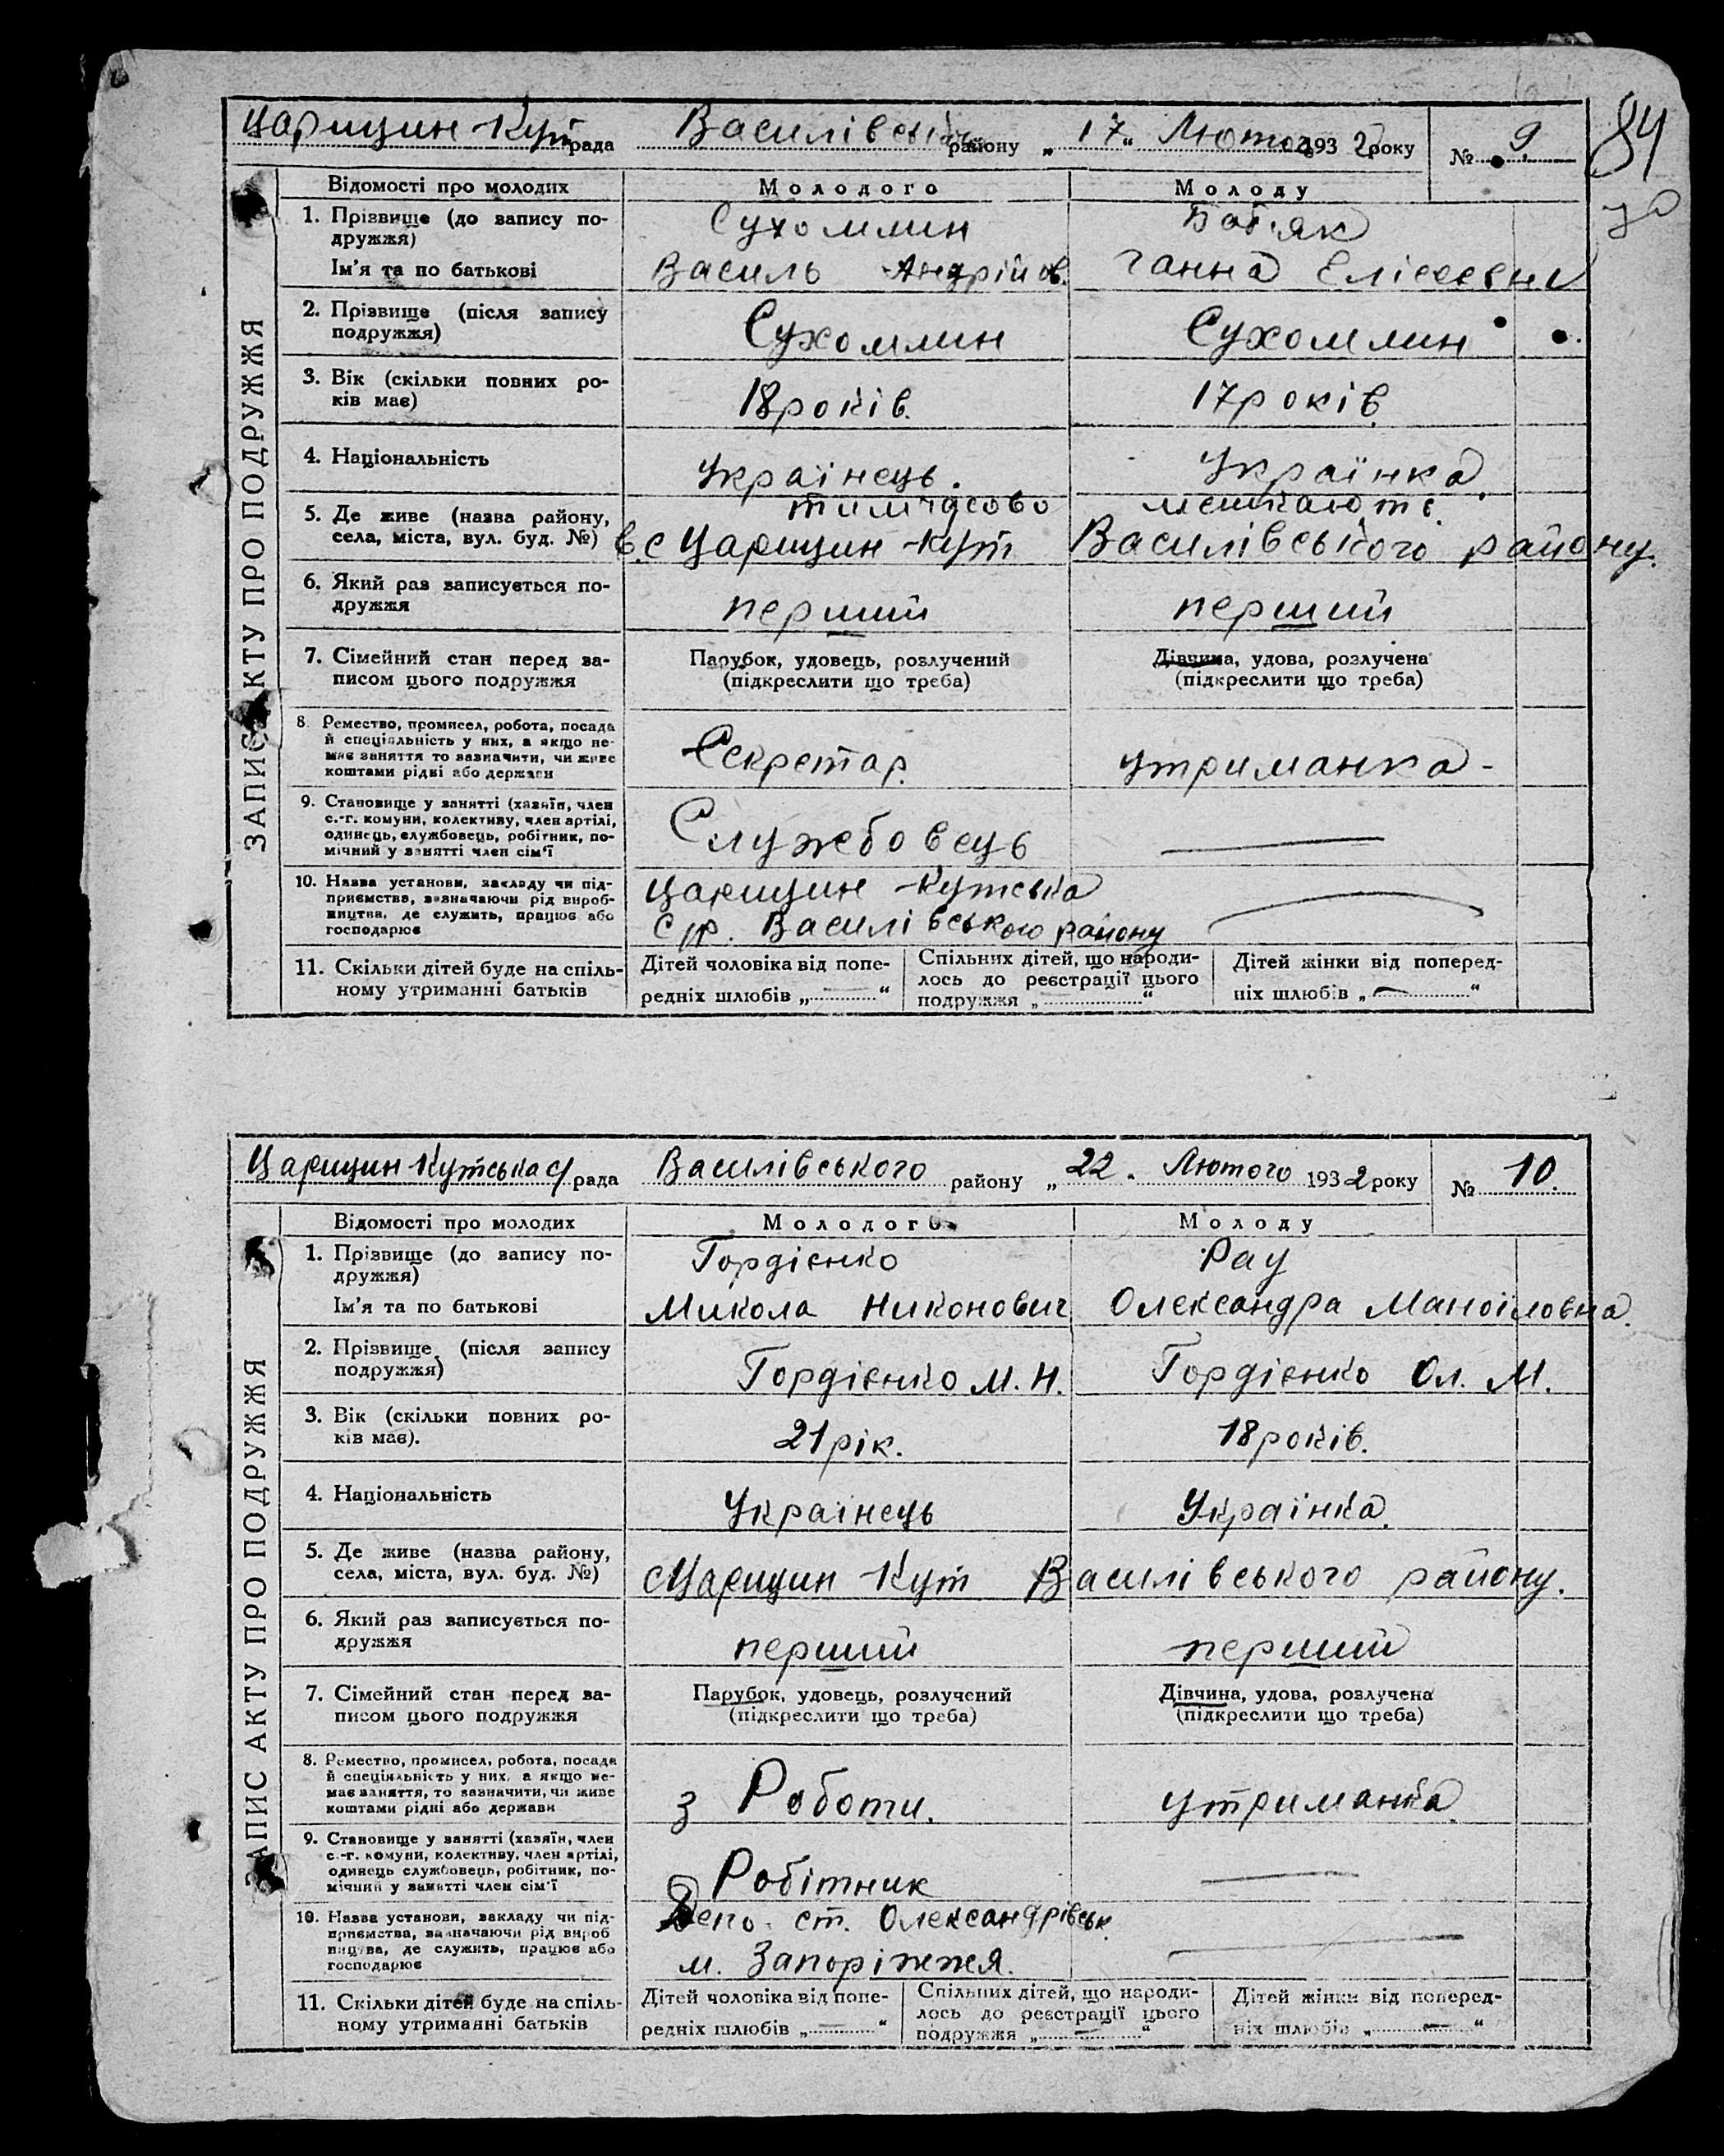 Царицин-Кут рада Василівськ району „17“ Лютого 1932 року № 9 84
ЗАПИС АКТУ ПРО ПОДРУЖЖЯ
Відомості про молодих Молодого Молоду
1. Прізвище (до запису по- Сухомлин
дружжя)
Ім’я та по батькові Василь Андрійов. Ганна Єлісеєвна
2. Прізвище (після запису Сухомлин Сухомлин
подружжя)
3. Вік (скільки повних ро- 18 років. 17 років.
ків має)
4. Національність Українець. Українка.
тимчасово мешкають
5. Де живе (назва району,
села, міста, вул. буд. №) в с Царицин-Кут Василівського району.
6. Який раз записується по- перший перший
дружжя
7. Сімейний стан перед за- Парубок, удовець, розлучений Дівчина, удова, розлучена
писом цього подружжя (підкреслити що треба) (підкреслити що треба)
8. Ремество, промисел, робота, посада
й спеціяльність у них, а якщо не- Секретар. утриманка -
має заняття то зазначити, чи живе
коштами рідні або держави
9. Становище у занятті (хазяїн, член
с.-г. комуни, колективу, член артілі, Службовець
одинець, службовець, робітник, по-
мічний у занятті член сім’ї
10. Назва установи, закладу чи під- Царицин-Кутська
приємства, зазначаючи рід вироб- с/р. Василівського району
ництва, де служить, працює або
господарює
11. Скільки дітей буде на спіль- Дітей чоловіка від попе- Спільних дітей, що народи- Дітей жінки від поперед-
ному утриманні батьків редніх шлюбів „—“ лось до реєстрації цього ніх шлюбів „—“
подружжя „—“
Царицин Кутська с/рада Василівського району „22. Лютого 1932 року № 10.
ЗАПИС АКТУ ПРО ПОДРУЖЖЯ
Відомості про молодих Молодого Молоду
1. Прізвище (до запису по- Гордієнко Рау
дружжя)
Ім’я та по батькові Микола Никонович Олександра Маноіловна.
2. Прізвище (після запису Гордієнко М. Н. Гордієнко Ол. М.
подружжя)
3. Вік (скільки повних ро- 21 рік. 18 років.
ків має).
4. Національність Українець Українка.
5. Де живе (назва району,
села, міста, вул. буд. №) с Царицин Кут Василівського району.
6. Який раз записується по- перший перший
дружжя
7. Сімейний стан перед за- Парубок, удовець, розлучений Дівчина, удова, розлучена
писом цього подружжя (підкреслити що треба) (підкреслити що треба)
8. Ремество, промисел, робота, посада
й спеціяльність у них, а якщо не- з Роботи. утриманка
має заняття, то зазначити, чи живе
коштами рідні або держави
9. Становище у занятті (хазяїн, член
с.-г. комуни, колективу, член артілі, Робітник
одинець службовець, робітник, по-
мічний у занятті член сім’ї
10. Назва установи, закладу чи під- Депо. ст. Олександрівськ.
приємства, зазначаючи рід вироб м. Запоріжжя.
ництва, де служить, працює або
господарює
11. Скільки дітей буде на спіль- Дітей чоловіка від попе- Спільних дітей, що народи- Дітей жінки від поперед-
ному утриманні батьків редніх шлюбів „—“ лось до реєстрації цього ніх шлюбів „—“
подружжя „—“